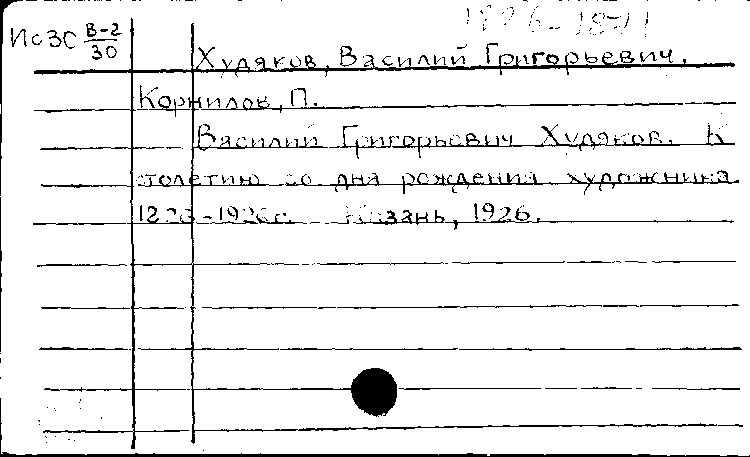 1826-1871
ИсЗС В-2/30
Худяков, Василий Григорьевич.
Корнилов, П.
Василий Григорьевич Худяков. К
столетию со дня рождения художника
1826-1926г. Казань, 1926.